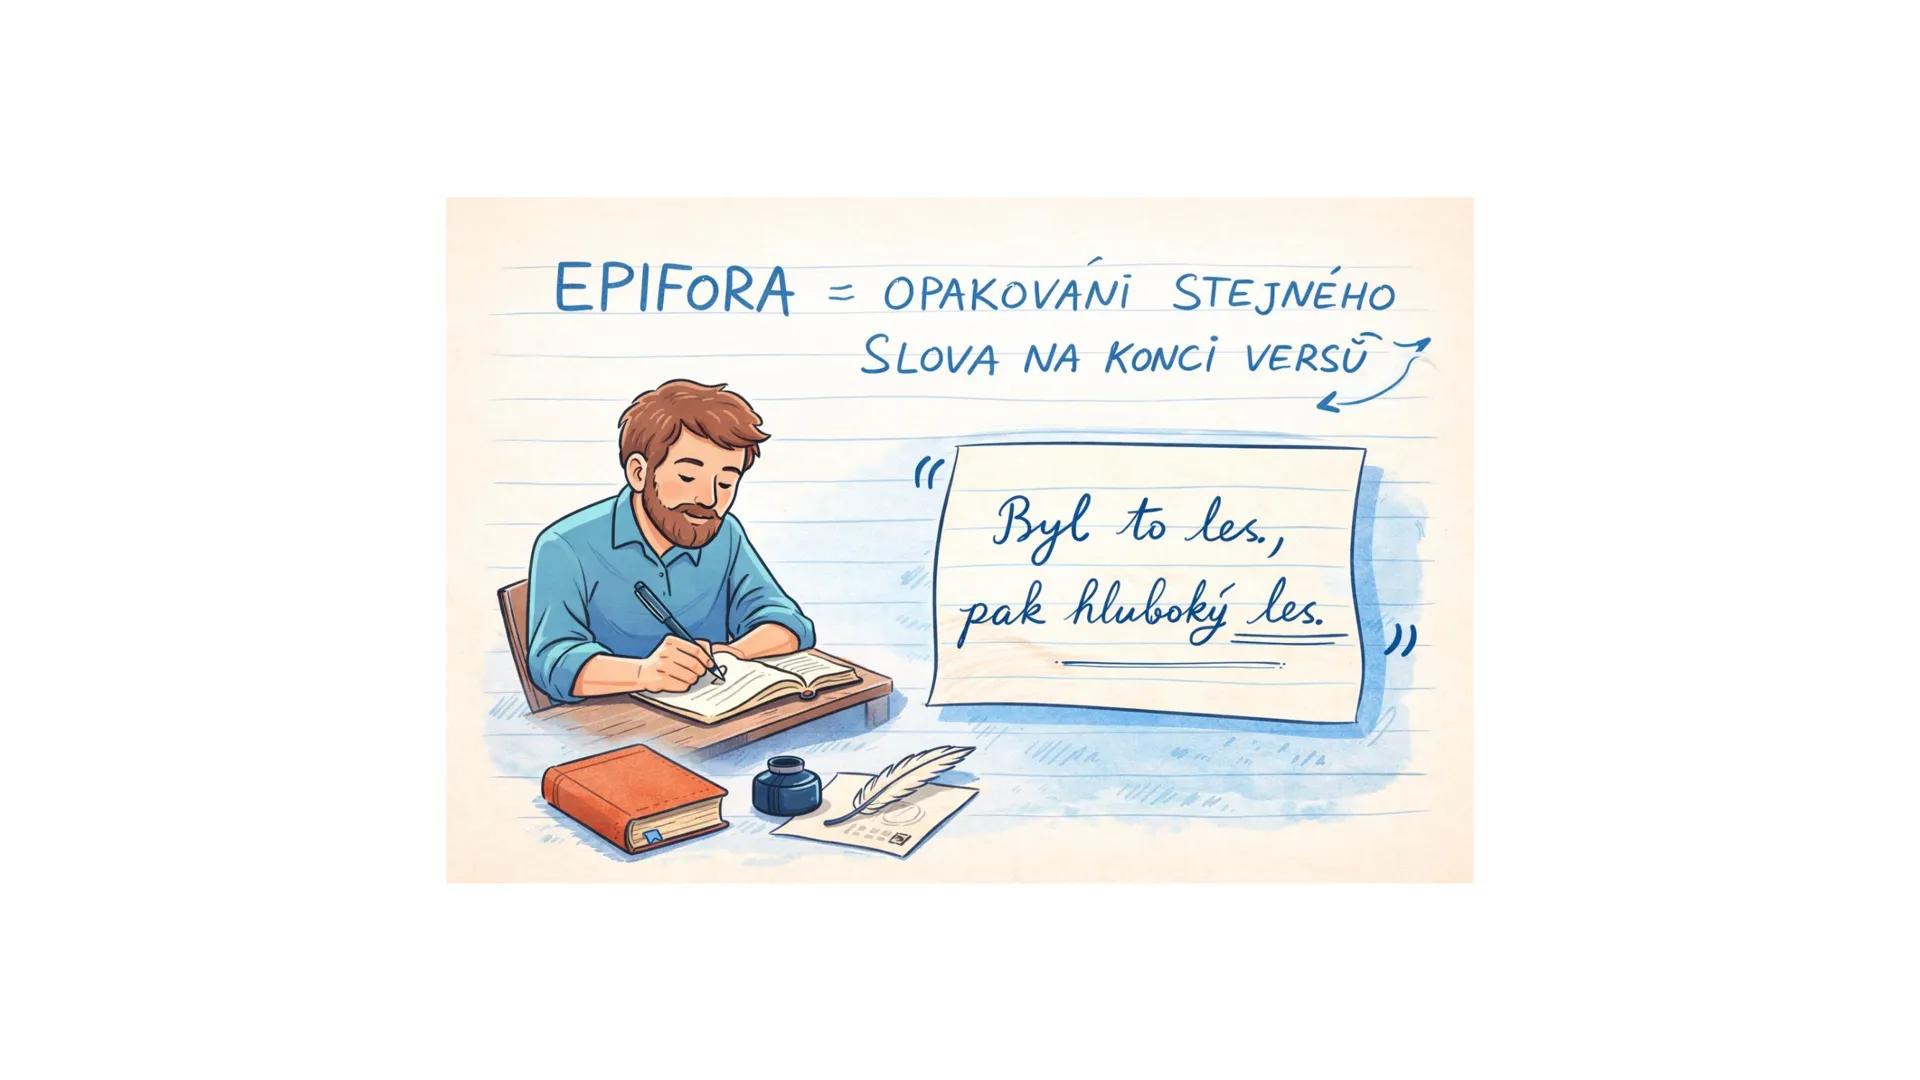 EPIFORA = OPAKOVÁNí STEJNÉHO
SLOVA NA KONCI VERSŮ
“Byl to les.,
pak hluboký les.”